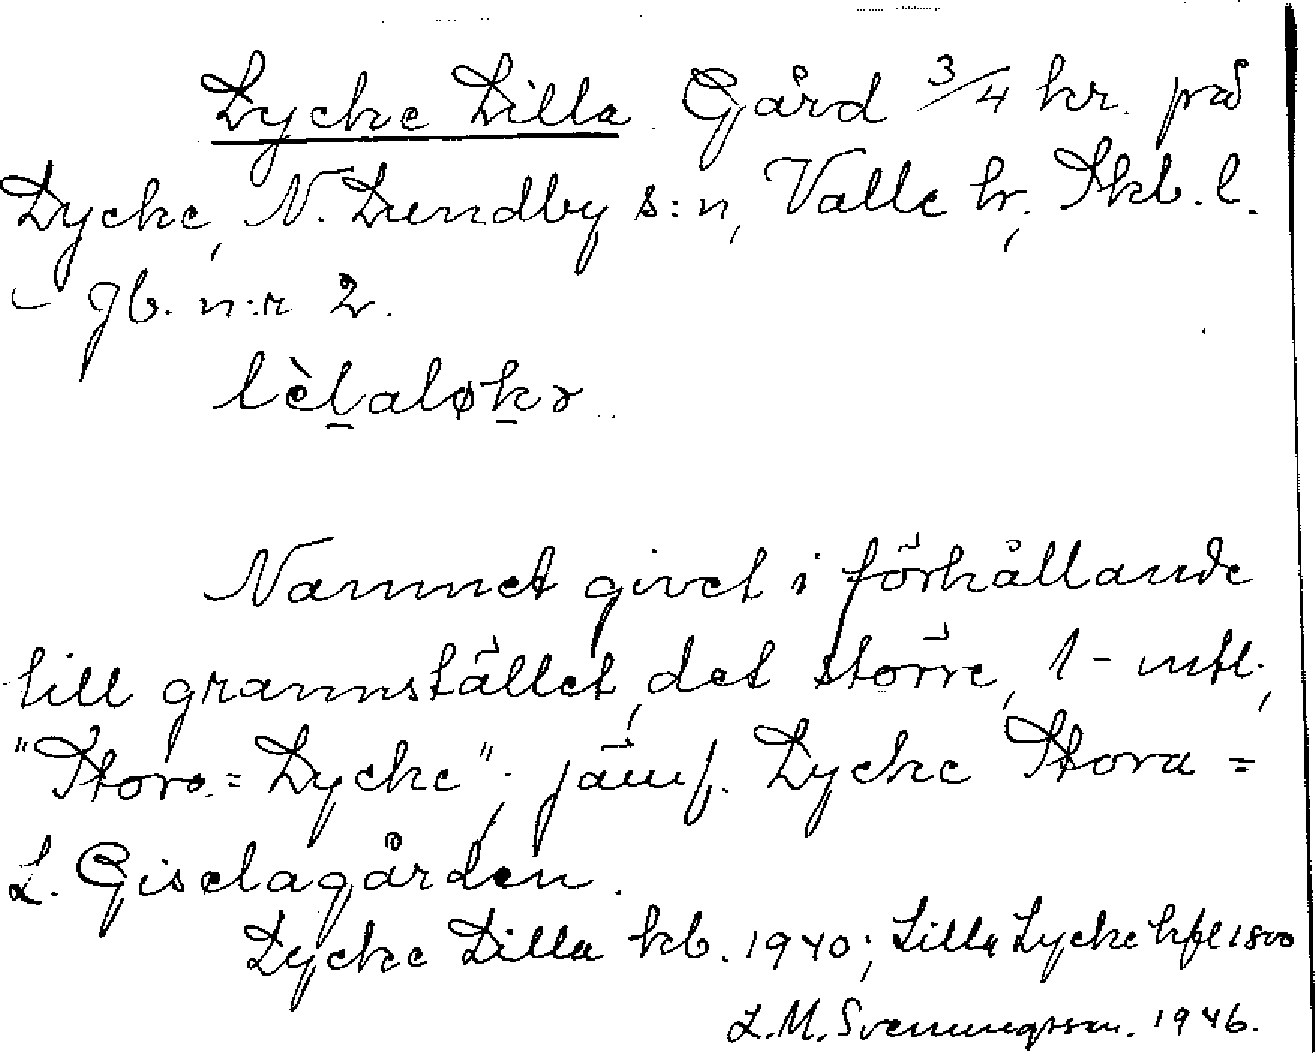 Lycke Lilla Gård 3/4 hr. på
Lycke, N. Lundby s:n, Valle hr, Skb. l.
– gb. n:r 2.
lèl̠aløk̠ər
Namnet givet i förhållande
till grannstället, det större, 1 - mtl.,
"Stora = Lycke"; jämf. Lycke Stora =
L. Giselagården.
Lycke Lilla kb. 1940; Lilla Lycke hfl 1800
L. M. Svenungsson. 1946.